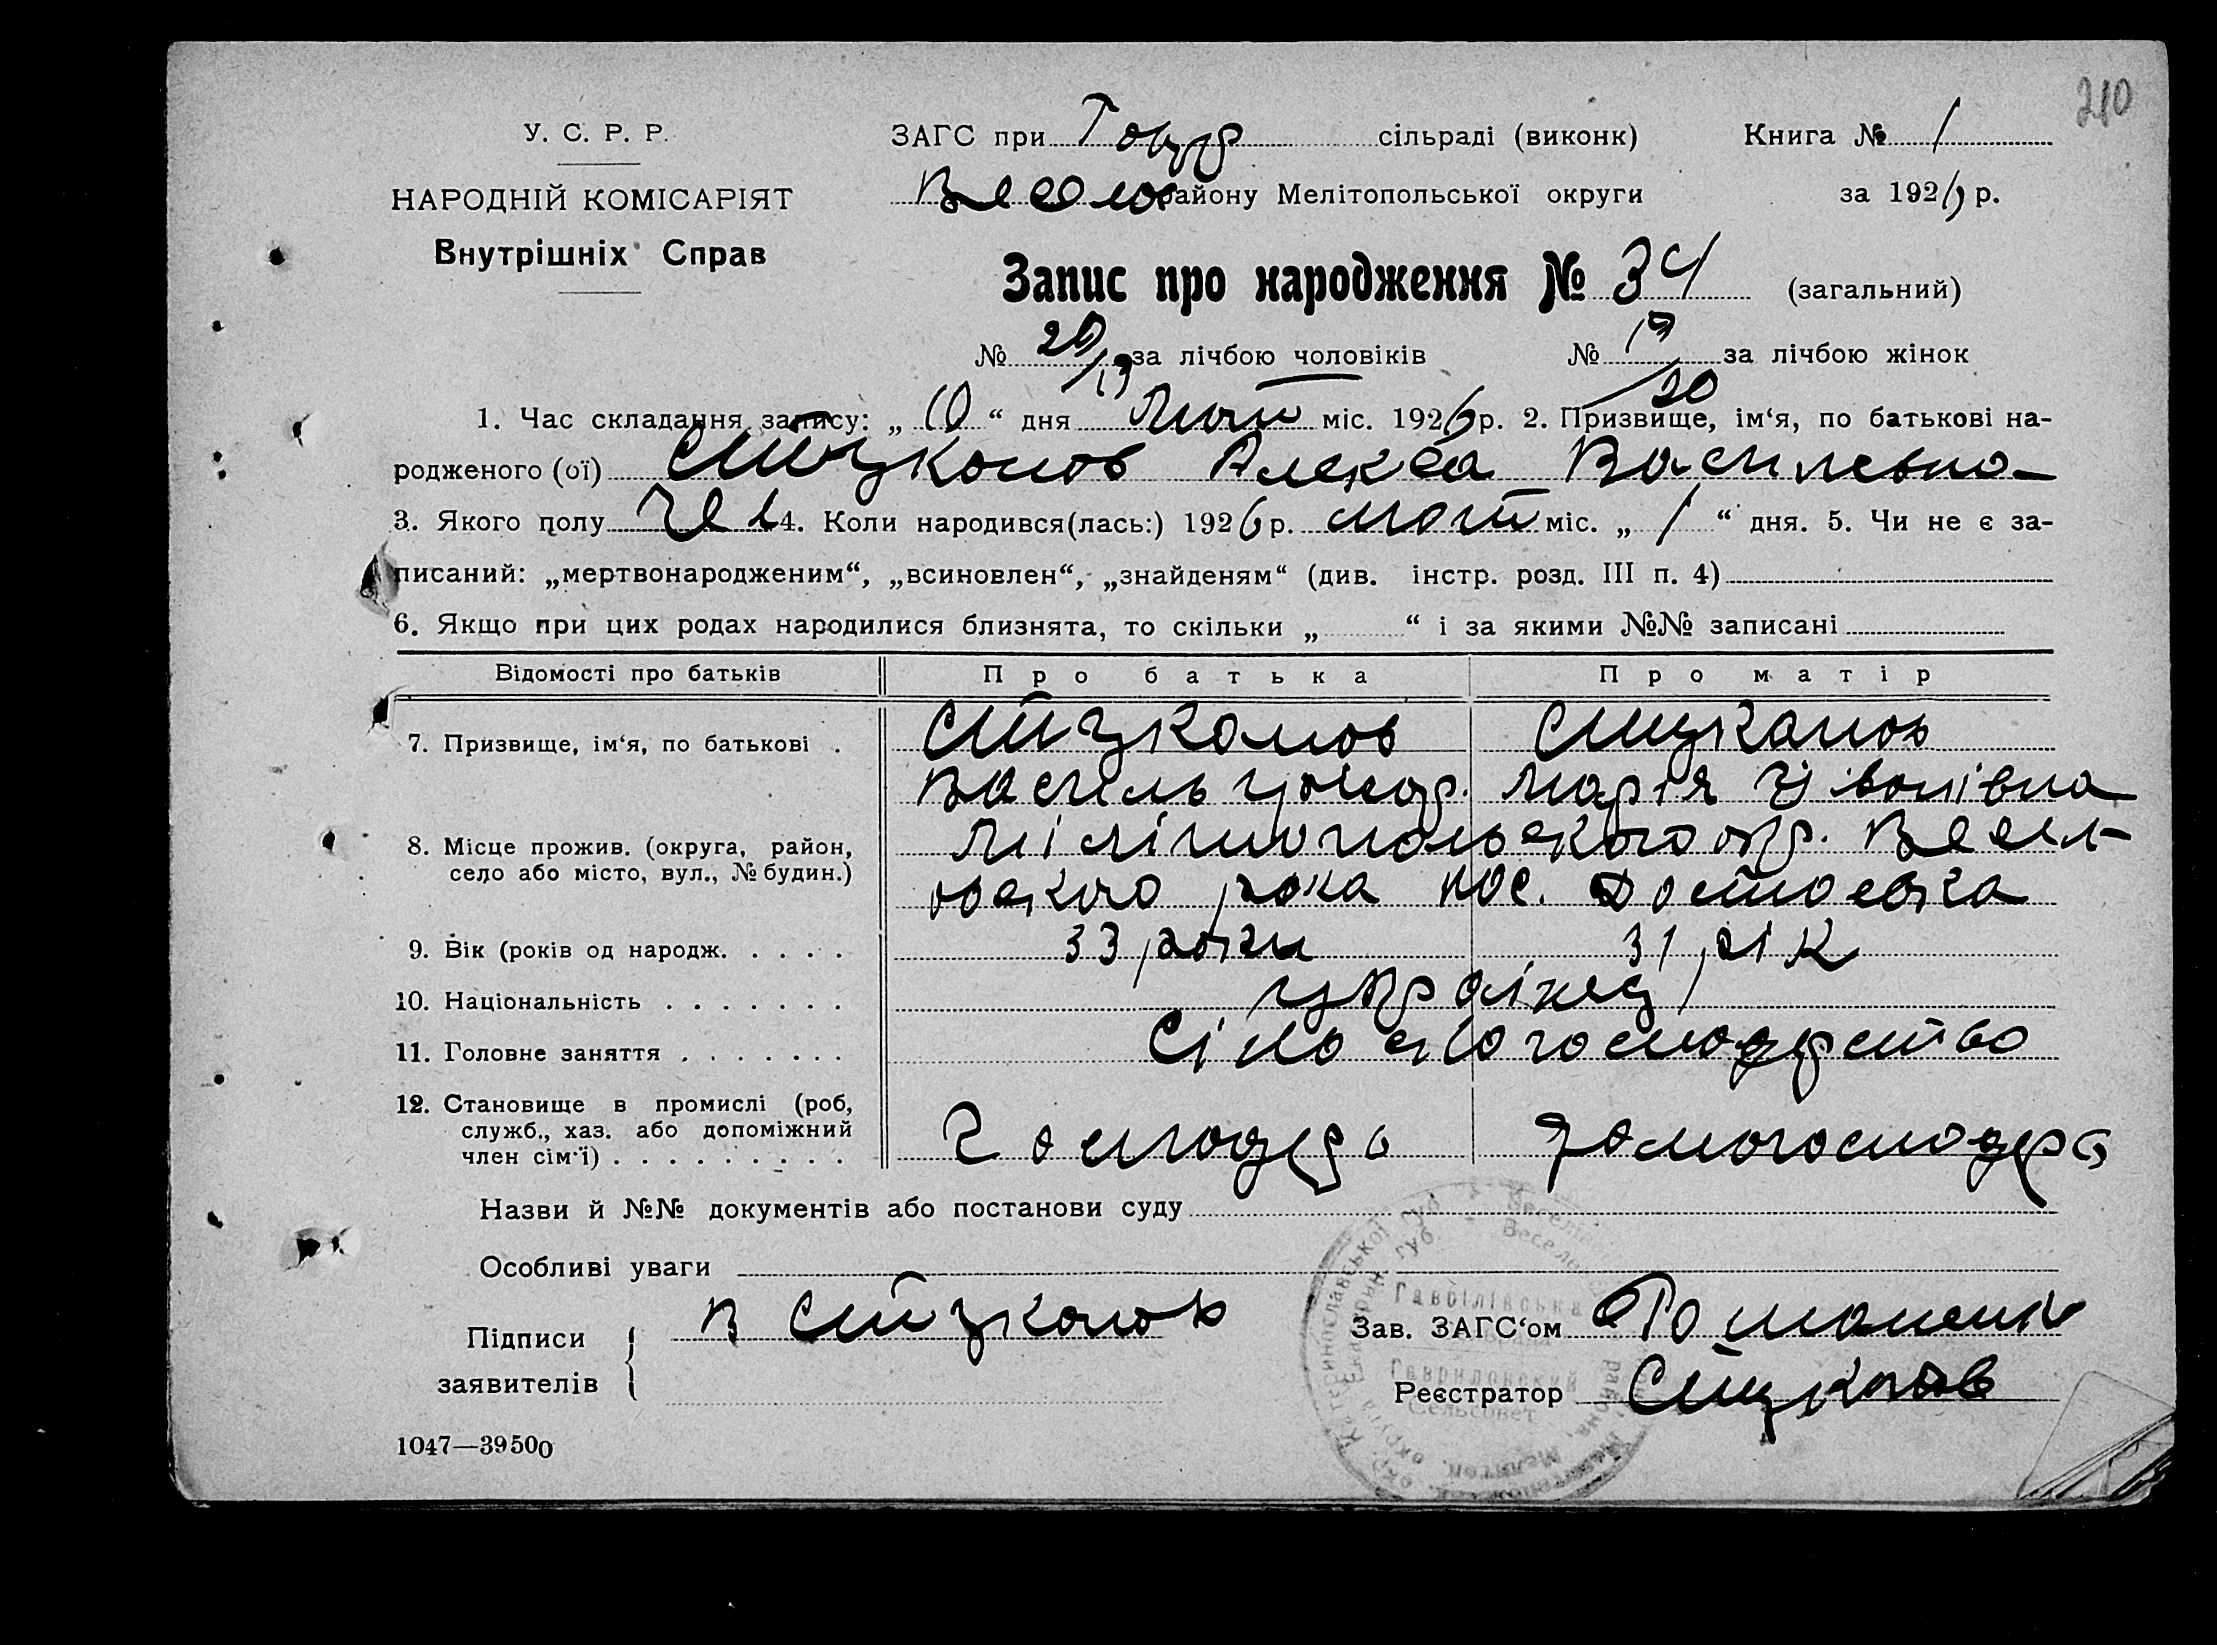 210
У. С. Р. Р.
ЗАГС при Гавр сільраді (виконк) Книга № 1
НАРОДНІЙ КОМІСАРІЯТ
Весело району Мелітопольської округи за 1926 р.
Внутрішніх Справ
Запис про народження № 34 (загальний)
№ за лічбою чоловіків № за лічбою жінок
1. Час складання запису: „ 10 “ дня міс. 1926 р. 2. Призвище, ім‘я, по батькові на-
родженого (ої) Стуконов Васильевна
3. Якого полу Чол 4. Коли народився(лась:) 1926 р. март міс. „ 1 “ дня. 5. Чи не є за-
писаний: „мертвонародженим“, „всиновлен“, „знайденям“ (див. інстр. розд. III п. 4)
6. Якщо при цих родах народилися близнята, то скільки „ “ і за якими №№ записані
Відомості про батьків Про батька Про матір
7. Призвище, ім‘я, по батькові . Стуконов Стуконов
Василь Марія
8. Місце прожив. (округа, район, Мілітопольского окр. Весил-
село або місто, вул., № будин.) овского рона пос. Достоевка
9. Вік (років од народж. . . . . 33 роки 31 рік
10. Національність . . . . . . . українец
11. Головне заняття . . . . . . . Сільскогосподарство
12. Становище в промислі (роб,
служб., хаз. або допоміжний Господарь домогосподарь
член сім‘ї) . . . . . . . . .
Назви й №№ документів або постанови суду
Особливі уваги
Підписи В Стуконов Зав. ЗАГС‘ом
заявителів Реєстратор Стуконов
Гаврилівська
Гавриловский
Сельсовет
1047—39500